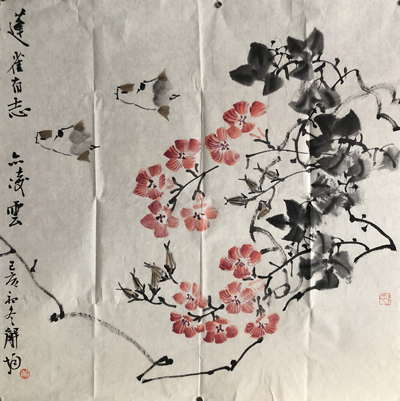 蓬雀有志
亦凌雲
己亥初冬解均